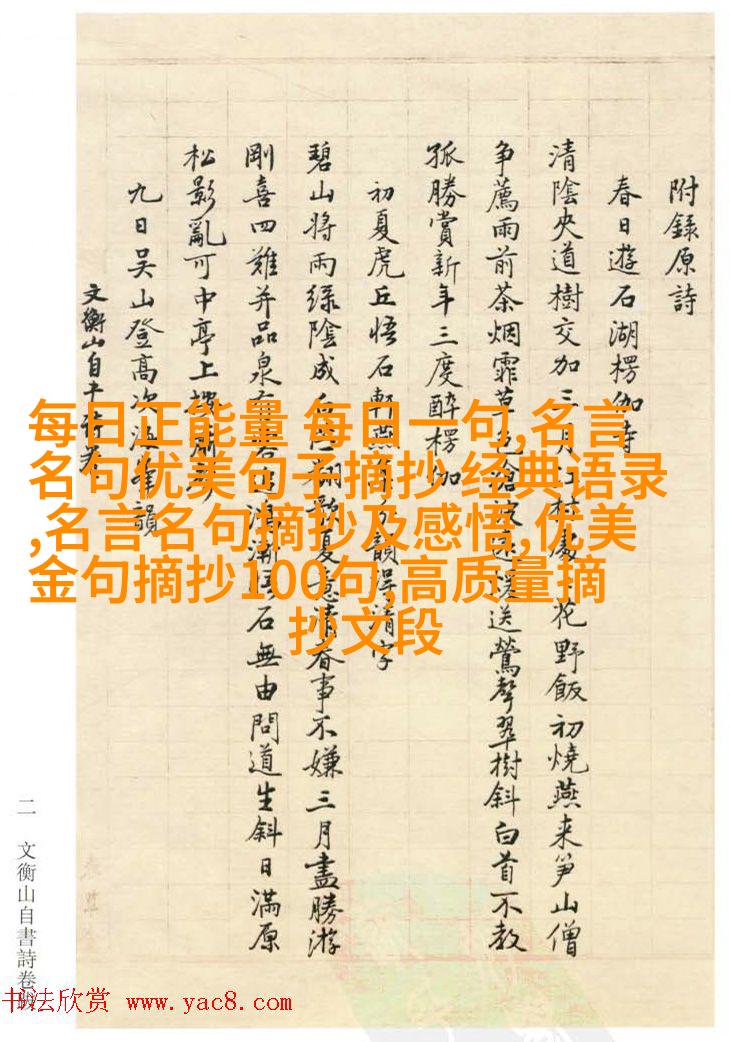 附錄原詩
春日遊石湖楞伽寺
清陰夾道樹交加三月江村處花野飯初燒燕来笋山僧
争薦雨前茶烟霏草色送鶯聲翠樹斜白首不教
孤勝賞新年三度醉楞伽
初夏虎丘悟石軒燕韻得清字
碧山将雨緑陰成夏意清春事不嫌三月盡勝游
剛喜四難并品泉石無由問道生斜日滿原
松影亂可中亭上
九日吴山登高次韻
文衡山自
每日正能量 每日一句,名言
名句优美句子摘抄 经典语录
,名言名句摘抄及感悟,优美
金句摘抄100句,高质量摘
抄文段
二 文衡山自書詩卷
书法欣赏 www.yac8.com